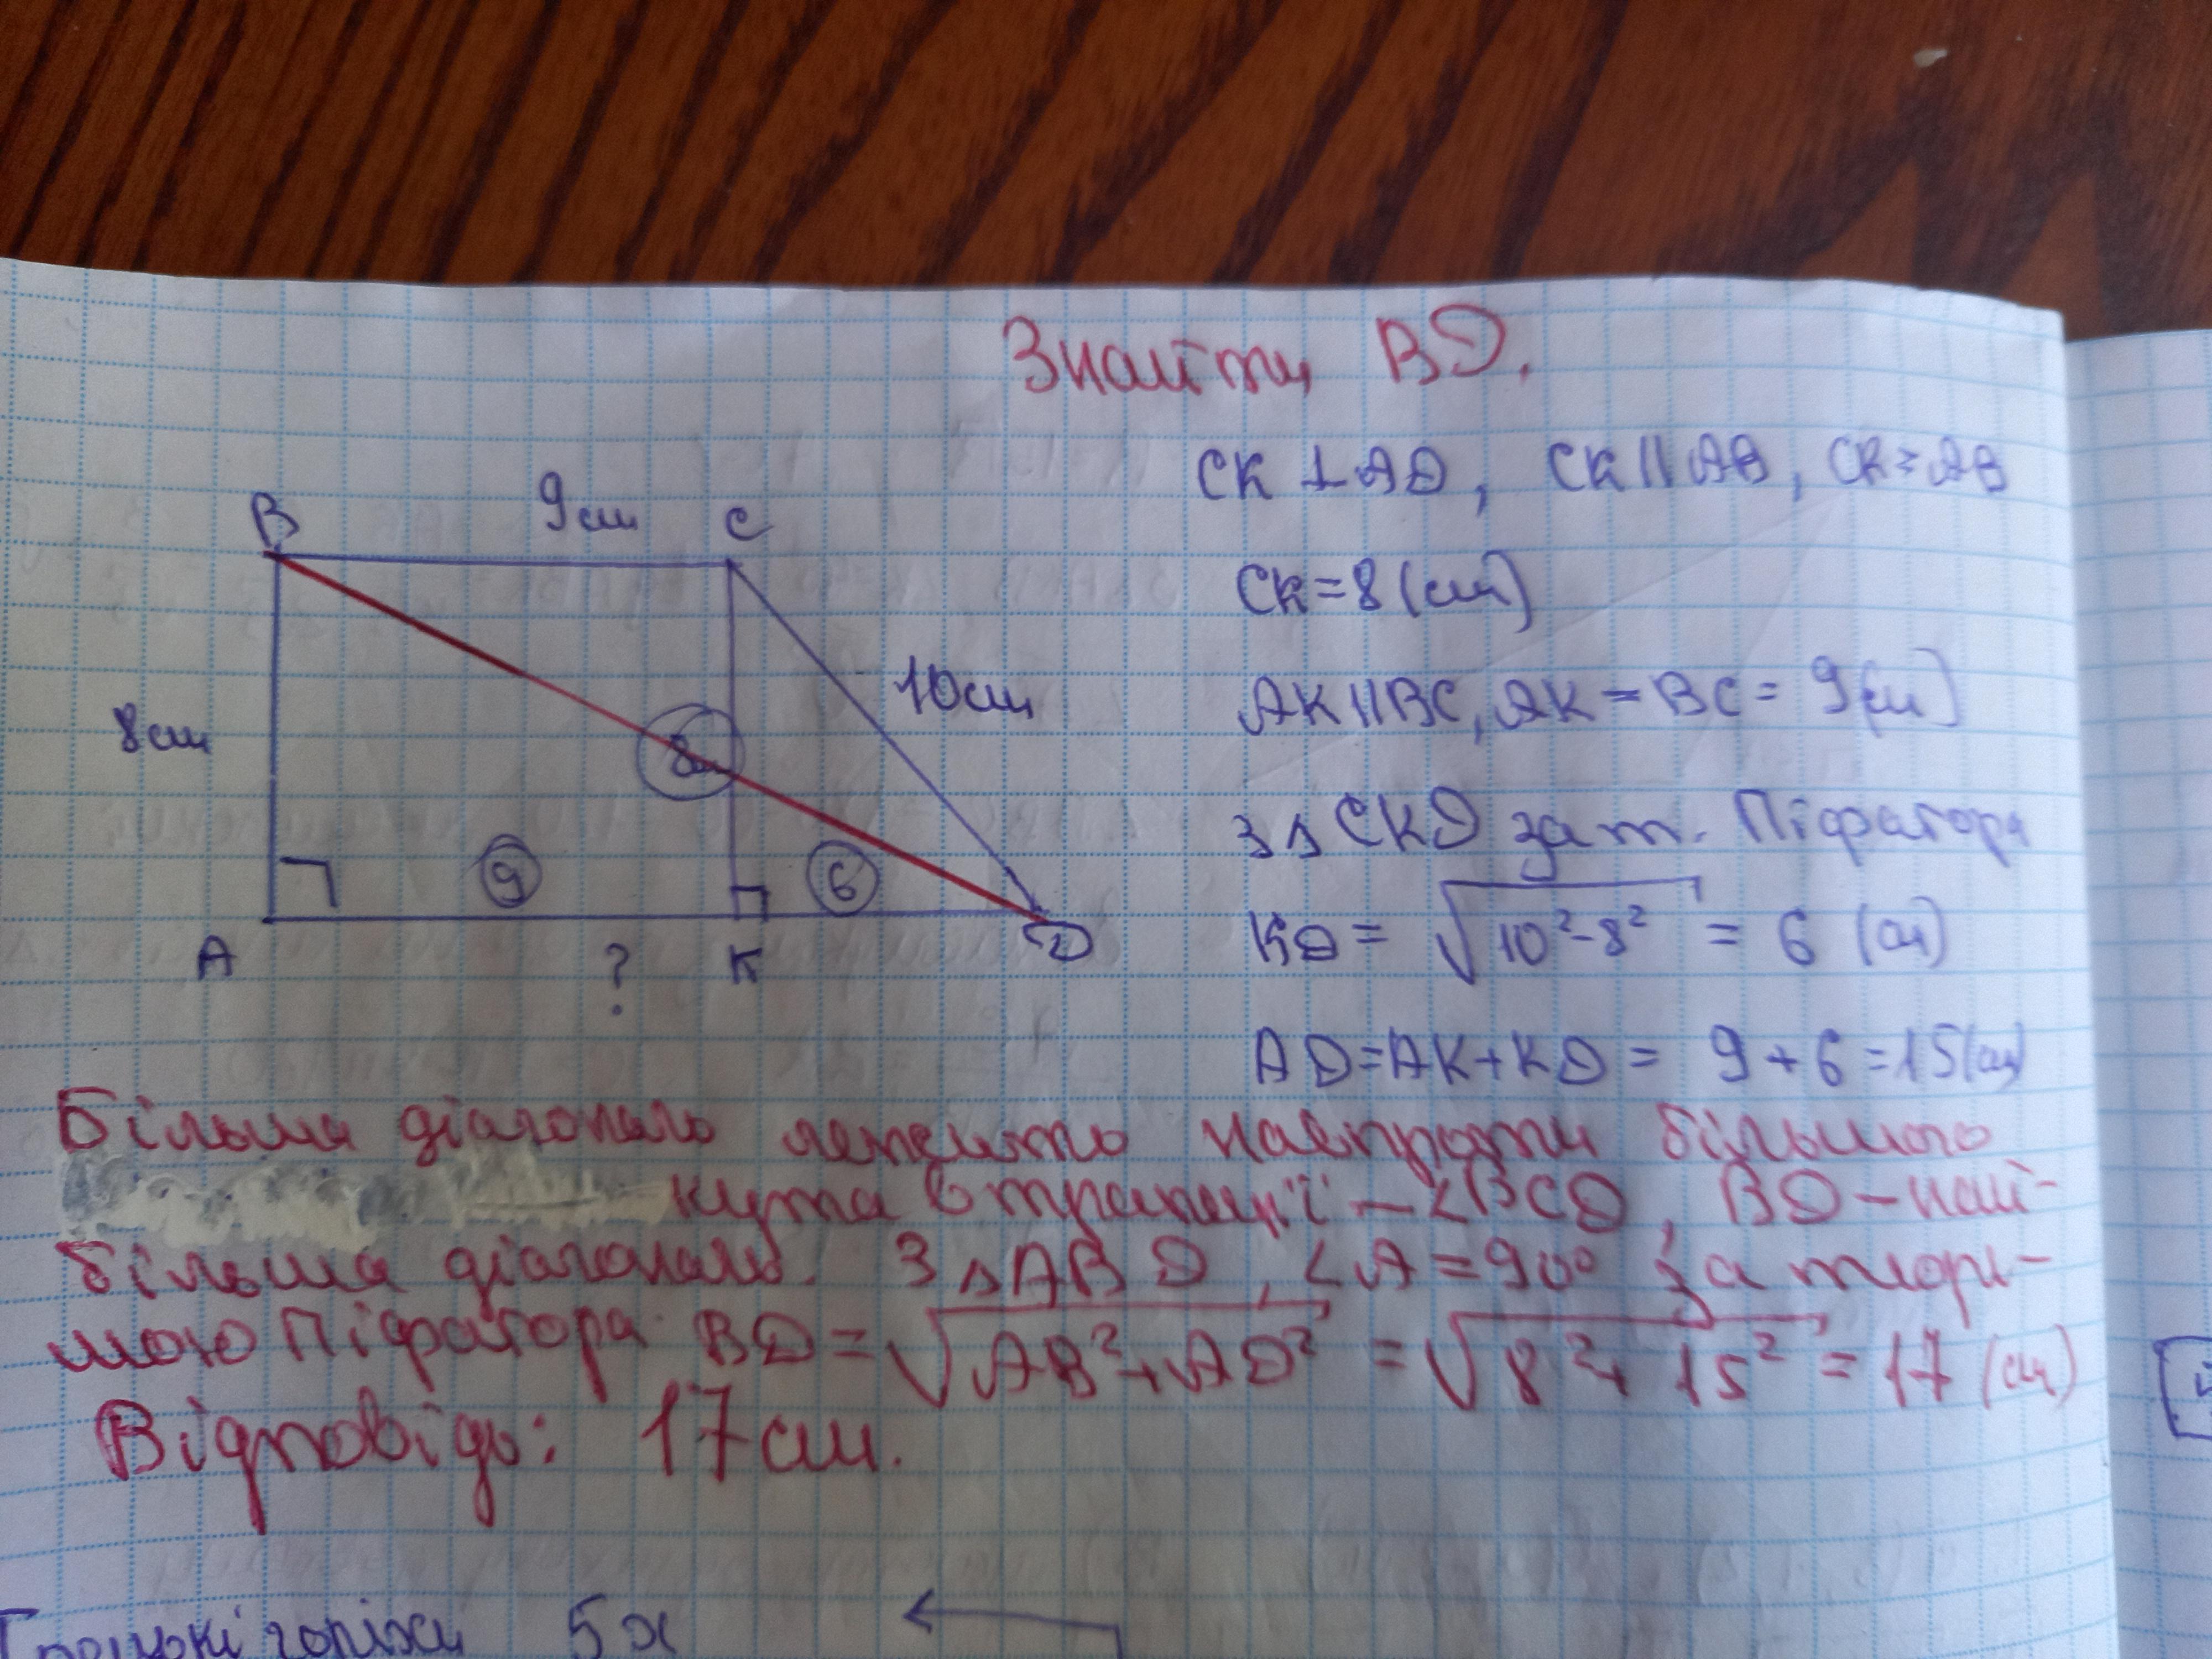 Знайти BD.
CK ⊥ AD, CK || AB, CK = AB
B 9 см C
CK = 8 (см)
10 см
AK || BC, AK = BC = 9 (см)
8 см
8 см
З Δ CKD за т. Піфагора
9 6
KD = √10²-8² = 6 (см)
A ? K D
AD = AK + KD = 9 + 6 = 15 (см)
Більша діагональ лежить навпроти більшого
кута в трапеції - ∠BCD, BD - най-
більша діагональ. З Δ ABD, ∠A = 90° за теоре-
мою Піфагора BD = √AB² + AD² = √8² + 15² = 17 (см)
Відповідь: 17 см.
Грецькі горіхи 5x